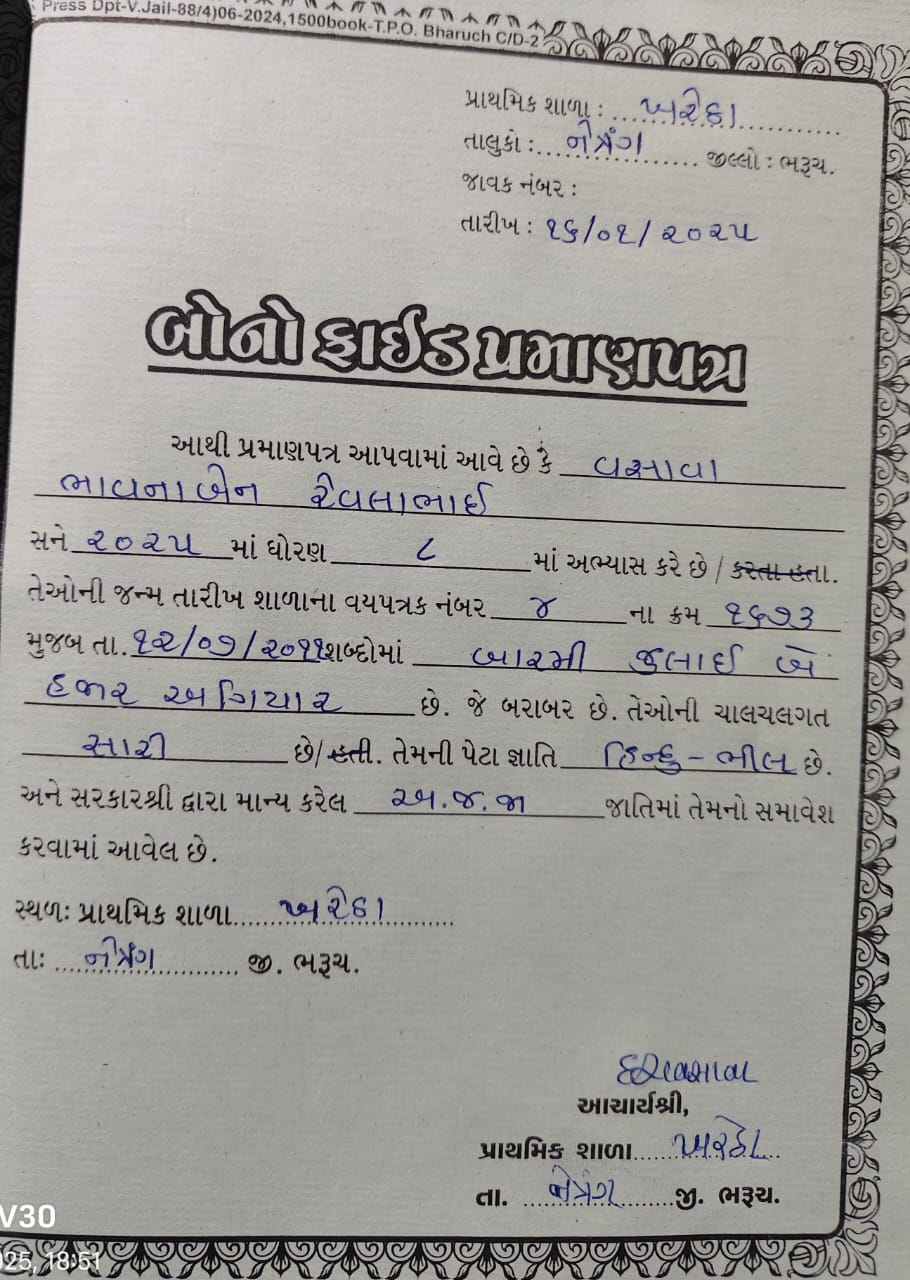 Press Dpt-V.Jail-88/4)06-2024,1500book-T.P.O. Bharuch C/D-2
પ્રાથમિક શાળા : ખરેઠા
તાલુકો : નેત્રંગ જીલ્લો : ભરૂચ.
જાવક નંબર :
તારીખ : ૧૬/૦૧/૨૦૨૫
બોનો ફાઈડ પ્રમાણપત્ર
આથી પ્રમાણપત્ર આપવામાં આવે છે કે વસાવા
ભાવનાબેન દેવલાભાઈ
સને ૨૦૨૫ માં ધોરણ ૮ માં અભ્યાસ કરે છે / કરતા હતા.
તેઓની જન્મ તારીખ શાળાના વયપત્રક નંબર ૪ ના ક્રમ ૧૬૭૩
મુજબ તા. ૧૨/૦૭/૨૦૧૧ શબ્દોમાં બારમી જુલાઈ બે
હજાર અગિયાર છે. જે બરાબર છે. તેઓની ચાલચલગત
સારી છે/હતી. તેમની પેટા જ્ઞાતિ હિન્દુ - ભીલ છે.
અને સરકારશ્રી દ્વારા માન્ય કરેલ અ.જ.જા જાતિમાં તેમનો સમાવેશ
કરવામાં આવેલ છે.
સ્થળઃ પ્રાથમિક શાળા ખરેઠા
તાઃ નેત્રંગ જી. ભરૂચ.
આચાર્યશ્રી,
પ્રાથમિક શાળા ખરેઠા
તા. નેત્રંગ જી. ભરૂચ.
V30
025, 18:51